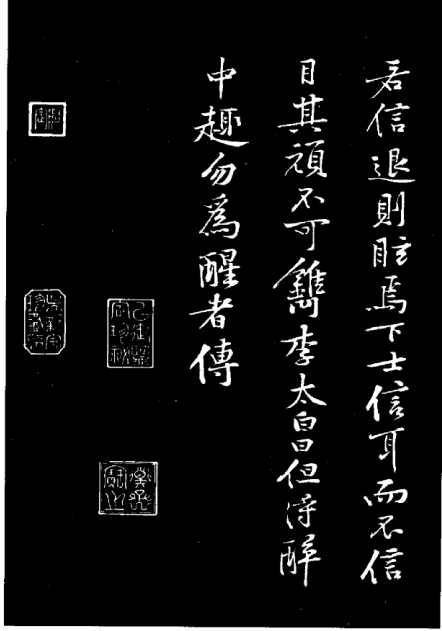 若信退則眩焉下士信耳而不信
目其頑不可鐫李太白曰但得醉
中趣勿爲醒者傳